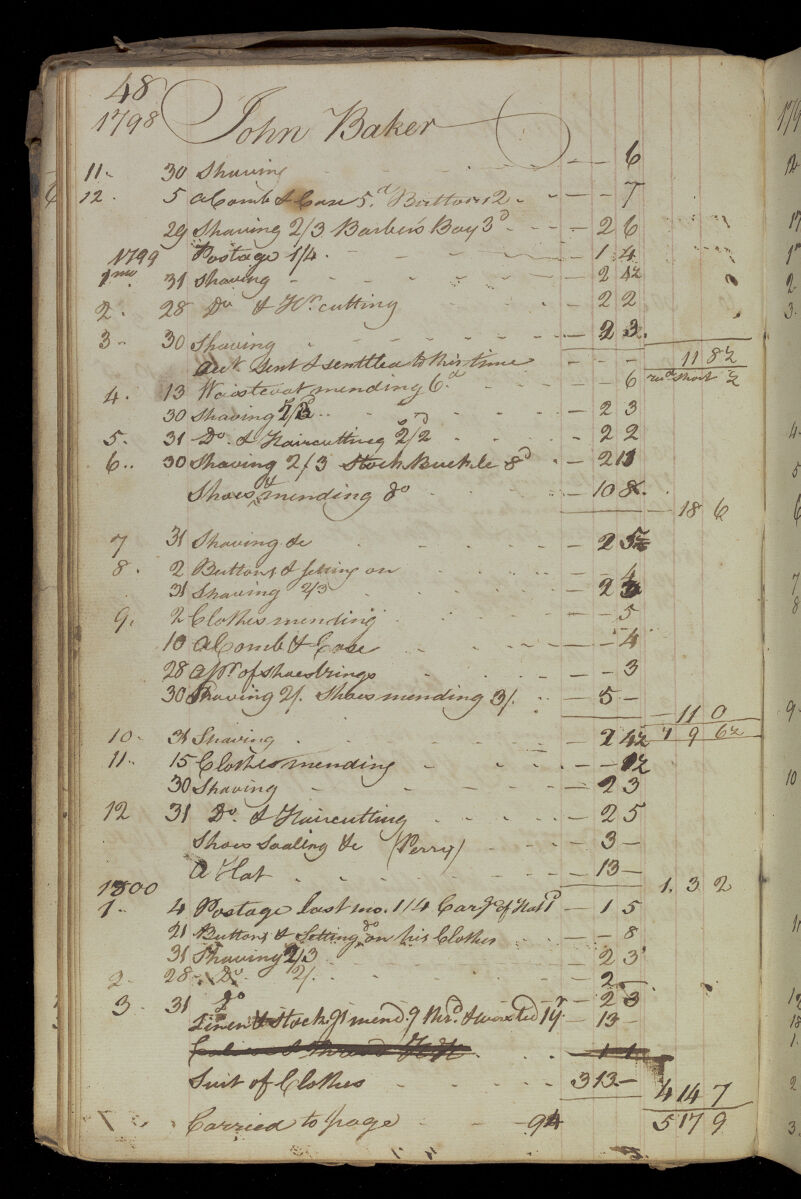 48
1798 John Baker
11. 30 Shaving - - 6
12. 5 a Comb & Case 5.d Buttons 2 - - 7
29 Shaving 2/3 Barbers Boy 3d - 2 6
1799 Postage 1/4. - 1 4
1mo 31 Shaving - 2 4½
2. 28 Do & Hr cutting - 2 2
3. 30 Shaving - 2 3.
acct sent & senttled to this time - - - 11 8½
4. 13 Waistcoat mending 6.d - 6 rd short ½
30 Shaving 2/3 - 2 3
5. 31 Do. & Haircutting 2/2 - 2 2
6.. 30 Shaving 2/3 Stock Buckle 8d - 2 11
Shoes mending &c - 10 8.
18 6
7 31 Shaving &c - 2 5½
8. 2 Buttons & setting on - 4
31 Shaving 2/3 - 2 3
9. 2 Clothes mending - 5
10 a Comb & Case - - 4
28 a pr. of shoestrings - - 3
30 Shaving 2/. Shoes mending 3/. - 5 -
11 0
10. 31 Shaving - 2 4½ 1 9 6½
11.. 15 Clothes mending - - 1½
30 Shaving - 2 3
12 31 Do. & Haircutting - 2 5
Shoes Soaling &c (Perry) - 3 -
A Hat - 13 -
1. 3 2
1800
1.. 4 Postage last mo. 1/4 Carge of Hat 1d - 1 5
21 Buttons & Setting do on his Clothes - - 8
31 Shaving 2/3 - 2 3
2. 28 - Do 2/. - 2 -
3 31 Do - 2 3
Linen & Stockgs mend.g thrd. & worsted - 13 -
- 1 1
Suit of Clothes - 3 13 -
4 14 7
Carried to page - 94 5 17 9